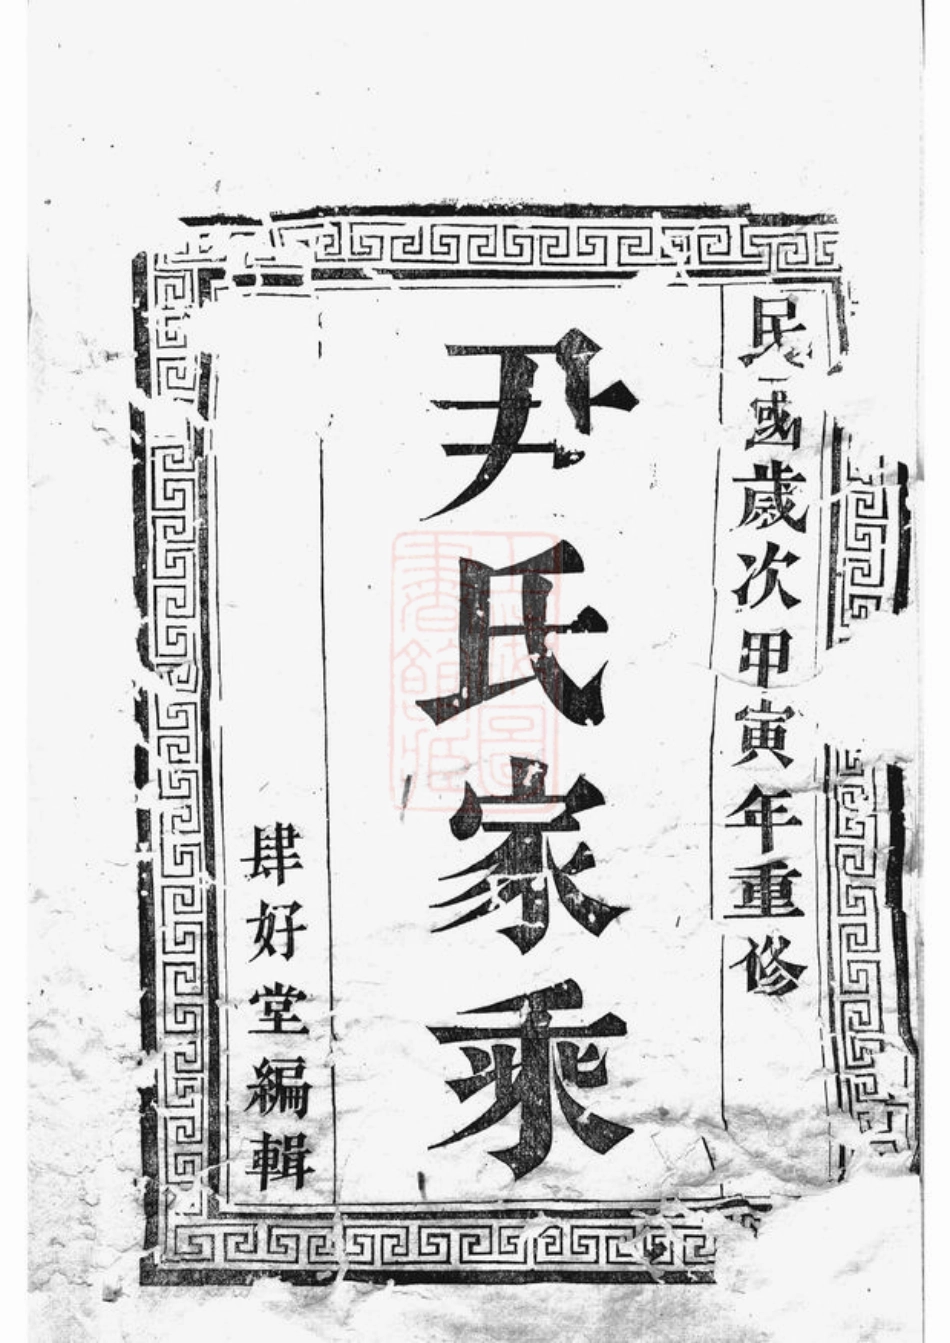 民國歲次甲寅年重修
尹氏家乘
肆好堂編輯